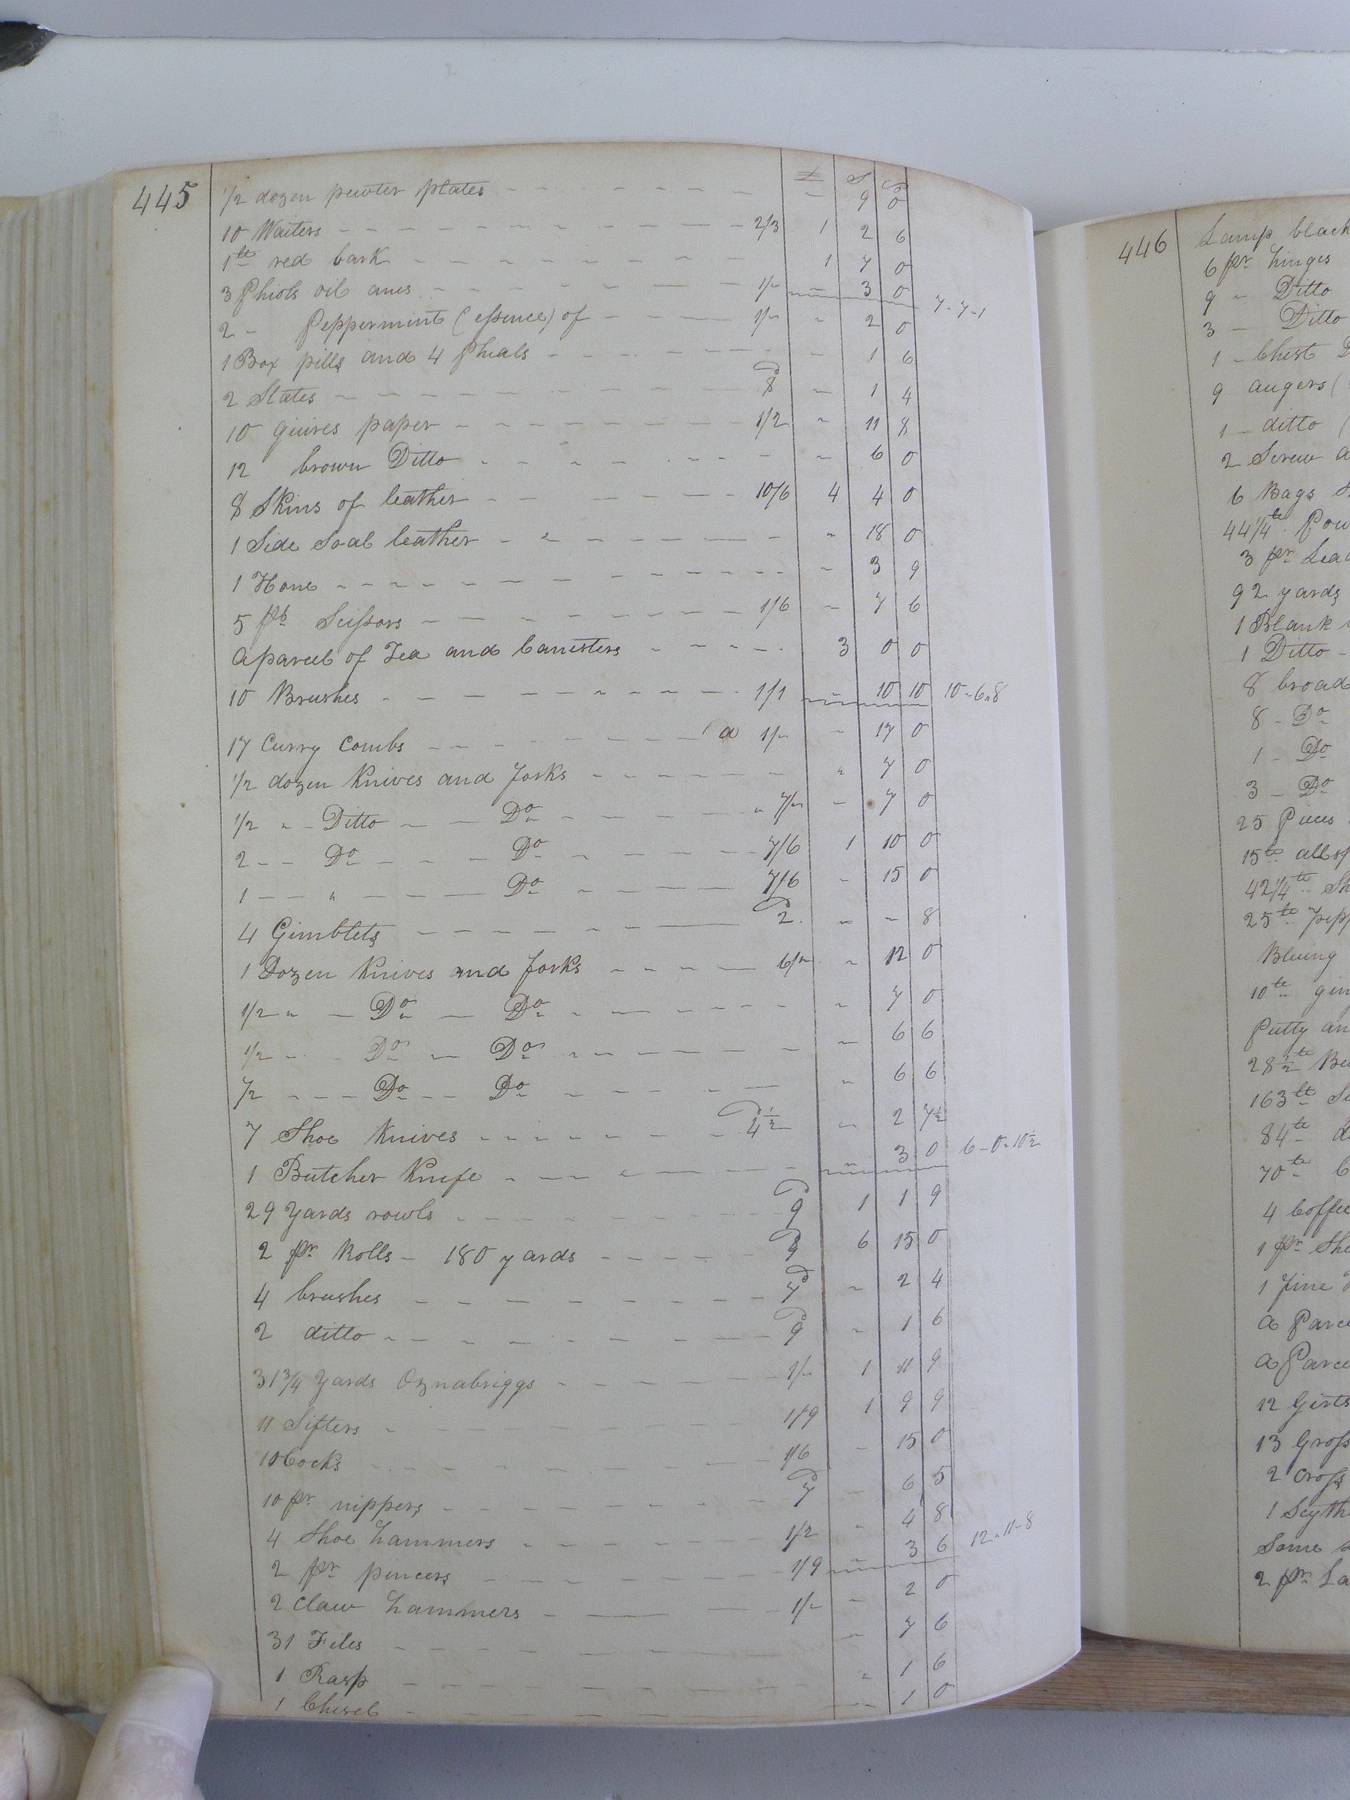 445
£ S D
1/2 dozen pewter plates - - 9 0
10 Waiters - 2/3 1 2 6
1 lb red bark - 1 7 0
3 Phiols oil anis - 1/- - 3 0 7-7-1
2 - Peppermint (essence) of - 1/- - 2 0
1 Box pills and 4 Phials - - 1 6
2 Slates - 8d - 1 4
10 quires paper - 1/2 - 11 8
12 brown Ditto - - 6 0
8 Skins of leather - 10/6 4 4 0
1 Side Soal leather - - 18 0
1 Hone - - 3 9
5 pr Scissors - 1/6 - 7 6
a parcel of Tea and Canisters - 3 0 0
10 Brushes - 1/1 - 10 10 10-6-8
17 Curry Combs - a 1/- - 17 0
1/2 dozen Knives and forks - - 7 0
1/2 " - Ditto - Do - " 7/- - 7 0
2 - - Do - Do - 7/6 1 10 0
1 - " - Do - 7/6 - 15 0
4 Gimblets - 2d - - 8
1 Dozen Knives and forks - 6/- - 12 0
1/2 " - Do - Do - - 7 0
1/2 - Do - Do - - 6 6
1/2 - Do - Do - - 6 6
7 Shoe Knives - 4 1/2d - 2 7 1/2
1 Butcher Knife - - 3 0 6-0-10 1/2
29 Yards rowls - 9d 1 1 9
2 pr Rolls - 180 yards - 9d 6 15 0
4 brushes - 7d - 2 4
2 ditto - 9d - 1 6
31 3/4 Yards Oznabriggs - 1/- 1 11 9
11 Sifters - 1/9 1 9 9
10 Cocks - 1/6 - 15 0
10 pr nippers - 7d - 6 5
4 Shoe hammers - 1/2 - 4 8
2 pr pincers - 1/9 - 3 6 12-11-8
2 Claw hammers - 1/- - 2 0
31 Files - - 7 6
1 Rasp - - 1 6
1 Chisel - - 1 0
446
Lamp black
6 pr hinges
9 - Ditto
3 - Ditto
1 - Chest
9 augers (
1 - ditto (
2 Screw
6 Bags
44 1/4 lb
3 pr
92 yards
1 Blank
1 Ditto -
8 broad
8 - Do
1 - Do
3 - Do
25 Pieces
15 lb
42 1/4 lb
25 lb
Bluing
10 lb
Putty
28 1/2 lb
163 lb
84 lb
70 lb
4
1 pr
1 fine
a
a
12
13
2
1
Some
2 pr